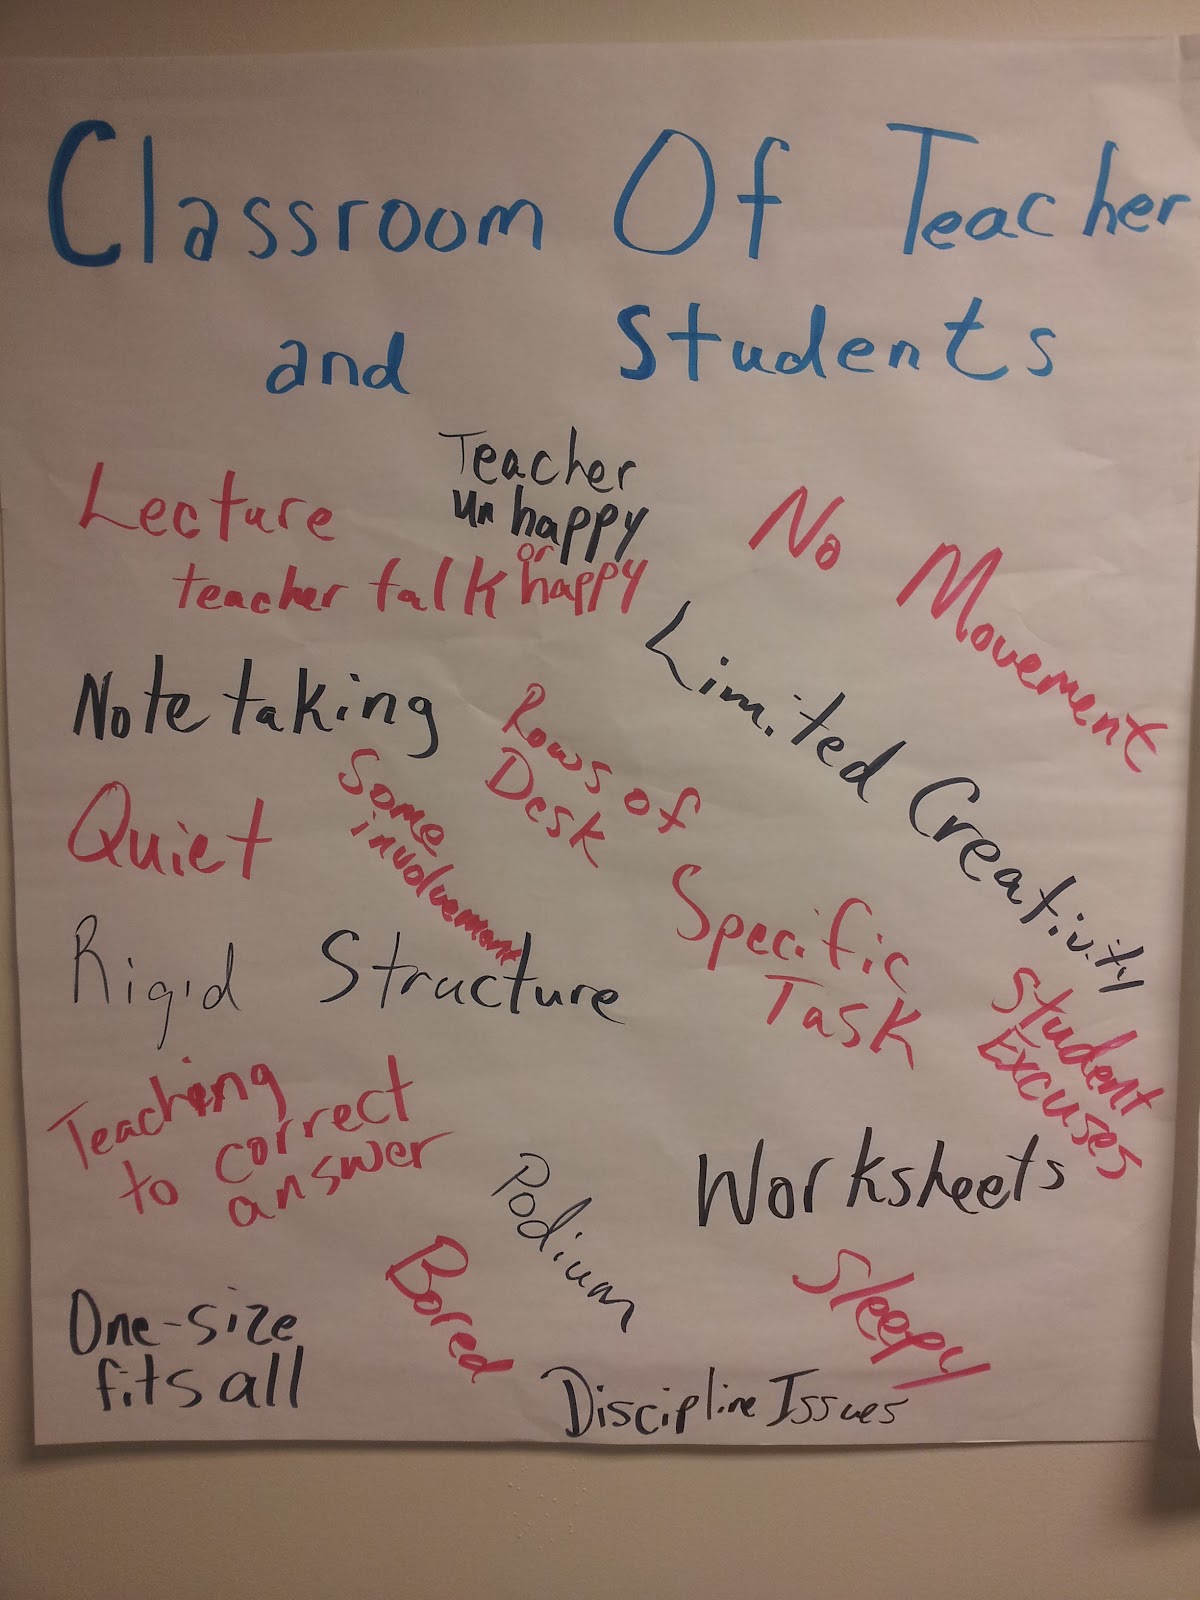 Classroom Of Teacher
and Students
Teacher
unhappy
or
happy
Lecture
teacher talk
No Movement
Limited Creativity
Note taking
Rows of
Desk
Some
involvement
Quiet
Specific
Task
Rigid Structure
Student
Excuses
Teaching
to correct
answer
Podium
Worksheets
Bored
Sleepy
One-size
fits all
Discipline Issues